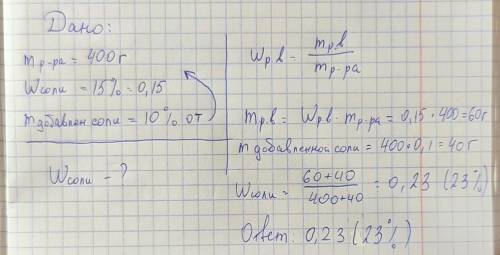 Дано:
m р-ра = 400 г
W соли = 15% = 0,15
m добавлен соли = 10% от
W соли - ?
W р.в = m р.в / m р-ра
m р.в = W р.в · m р-ра = 0,15 · 400 = 60 г
m добавленной соли = 400 · 0,1 = 40 г
W соли = 60+40 / 400+40 = 0,23 (23%)
Ответ: 0,23 (23%)